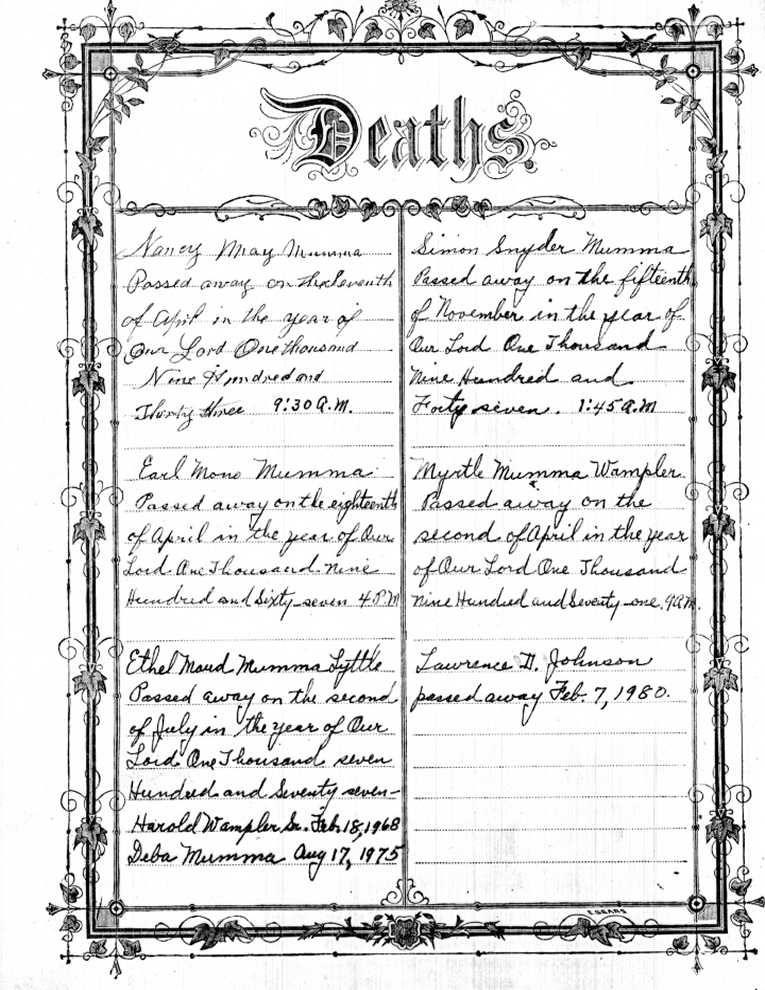 Deaths.
Nancy May Mumma
Passed away on the eleventh
of April in the year of
Our Lord One thousand
Nine Hundred and
Thirty three 9:30 A.M.
Earl Mono Mumma
Passed away on the eighteenth
of April in the year of Our
Lord One Thousand Nine
Hundred and Sixty-seven 4 P.M
Ethel Maud Mumma Lyttle
Passed away on the second
of July in the year of Our
Lord One Thousand seven
Hundred and Seventy seven-
Harold Wampler Sr. Feb. 18, 1968
Deba Mumma Aug 17, 1975
Simon Snyder Mumma
Passed away on the fifteenth
of November in the year of
Our Lord One Thousand
Nine Hundred and
Forty seven. 1:45 A.M
Myrtle Mumma Wampler
Passed away on the
second of April in the year
of Our Lord One Thousand
Nine Hundred and Seventy-one. 9 A.M.
Lawrence D. Johnson
passed away Feb. 7, 1980.
E. SEARS